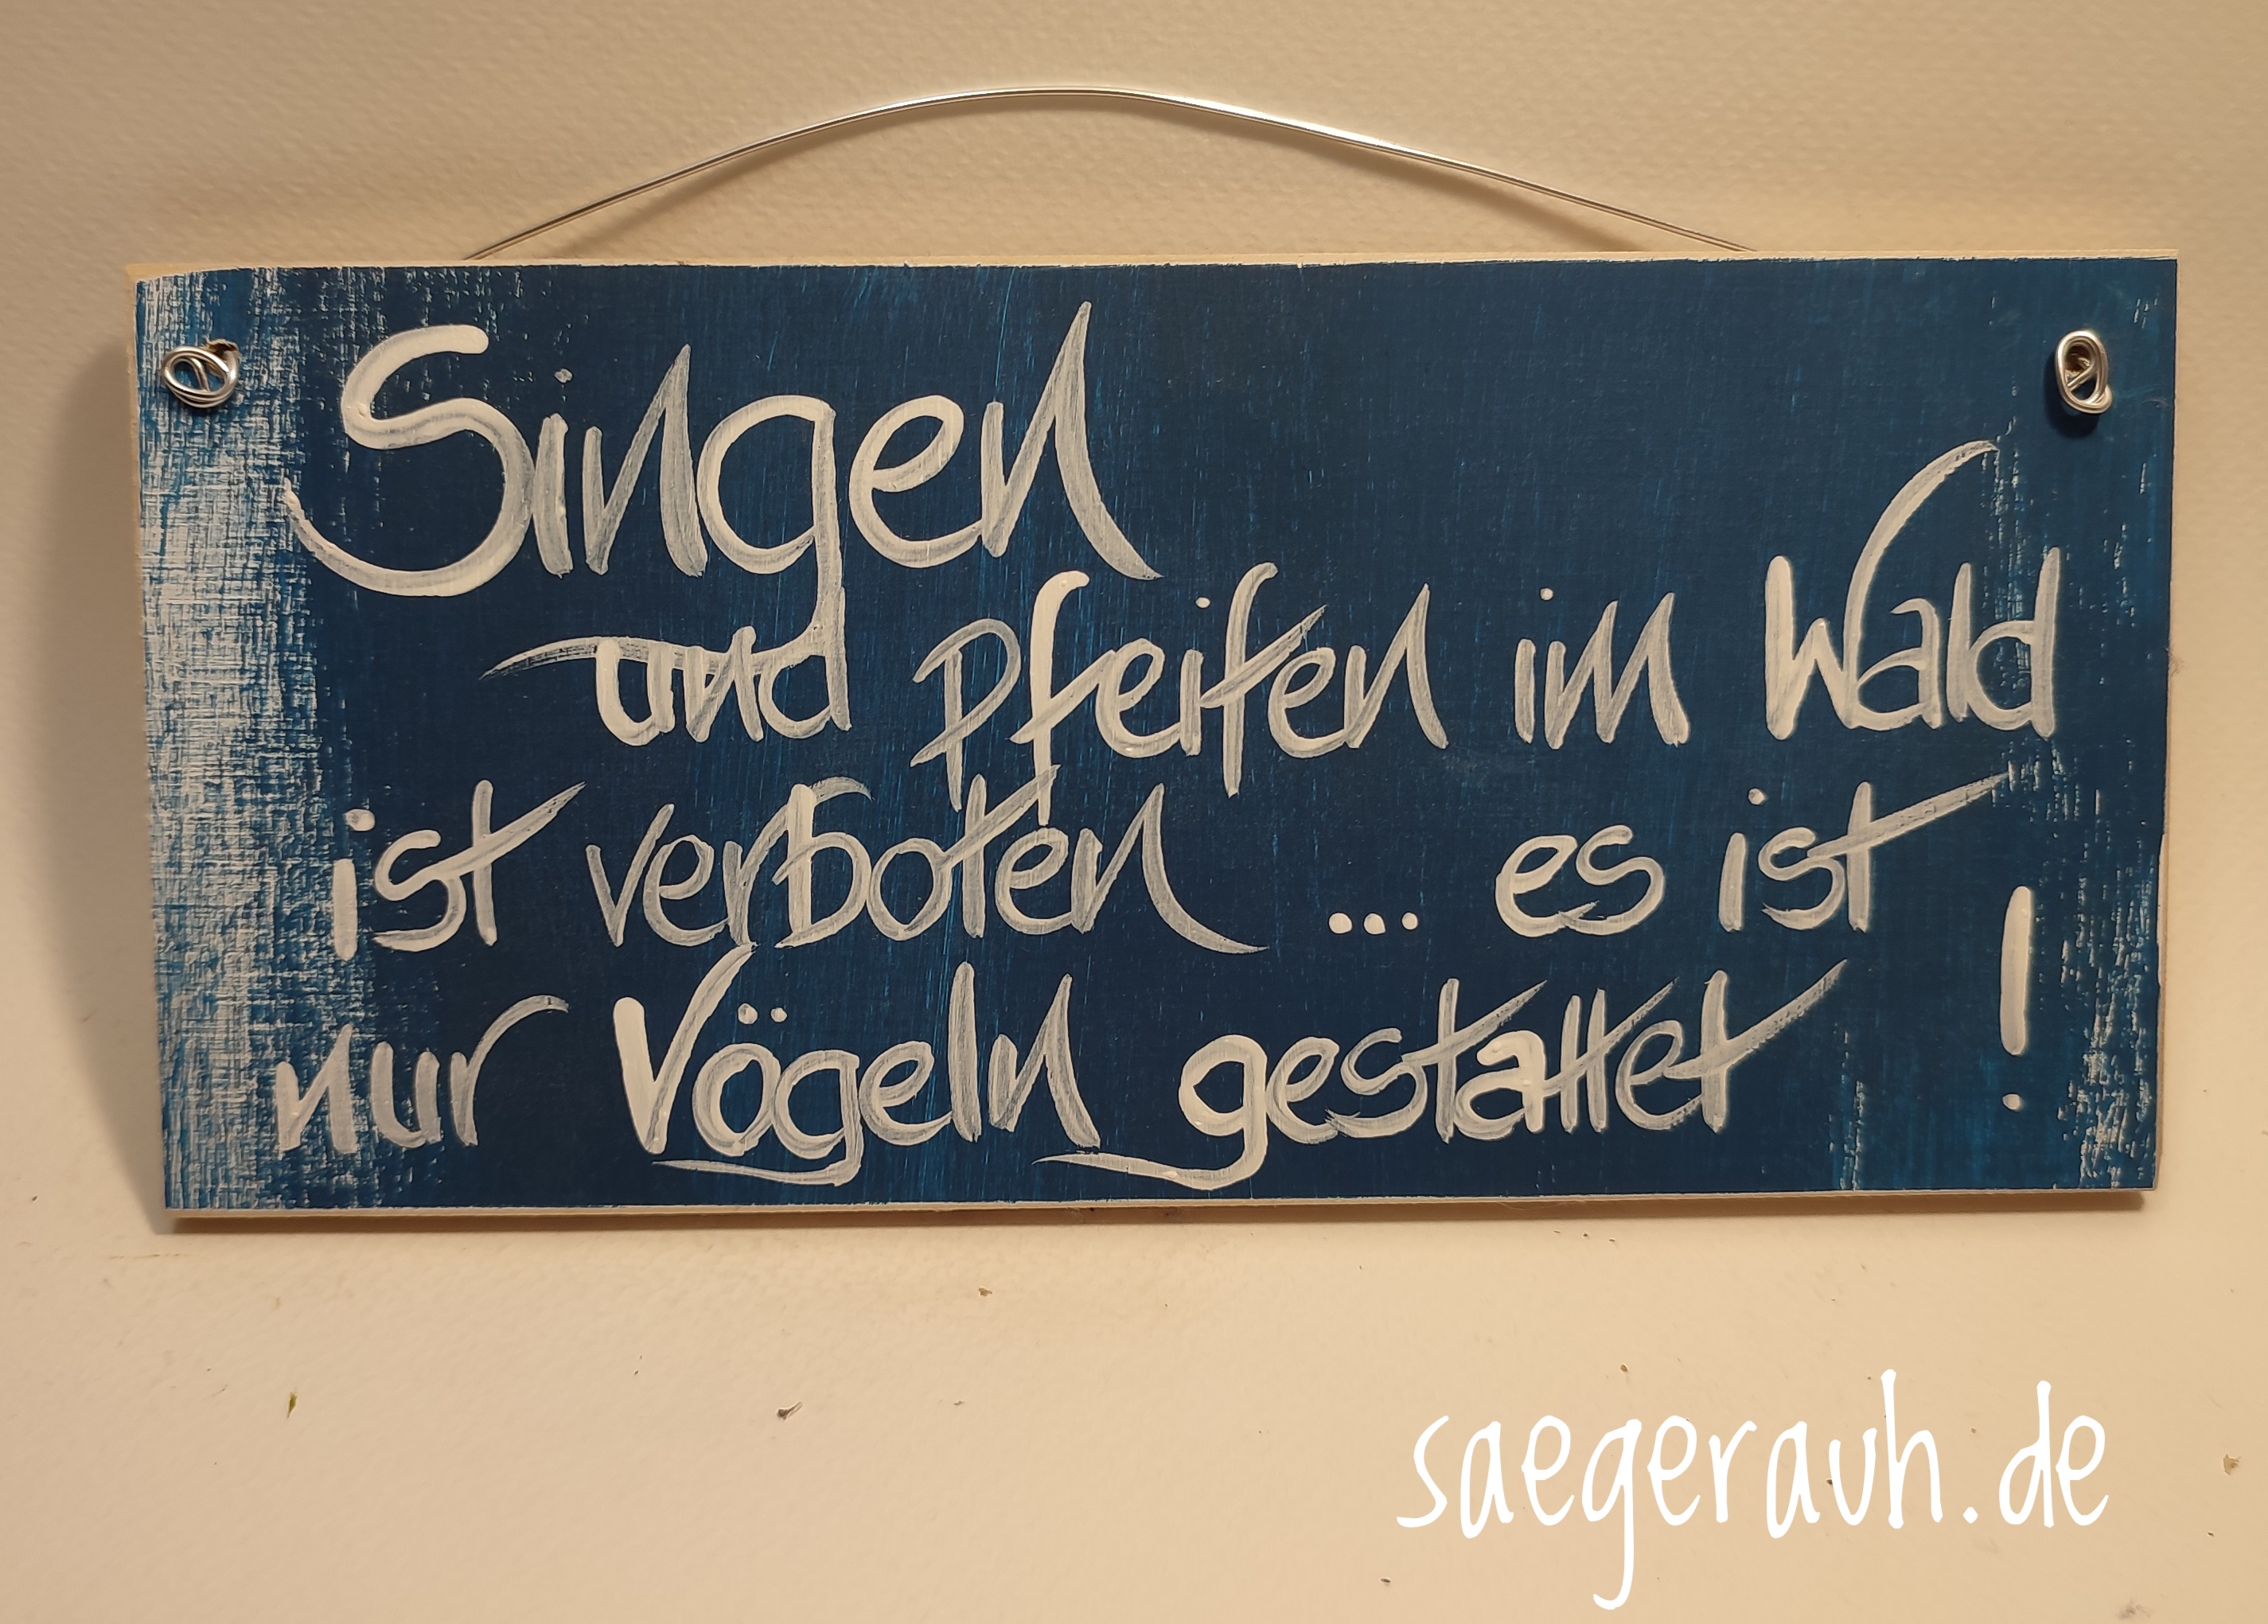 Singen
und Pfeifen im Wald
ist verboten ... es ist
nur Vögeln gestattet !
saegerauh.de